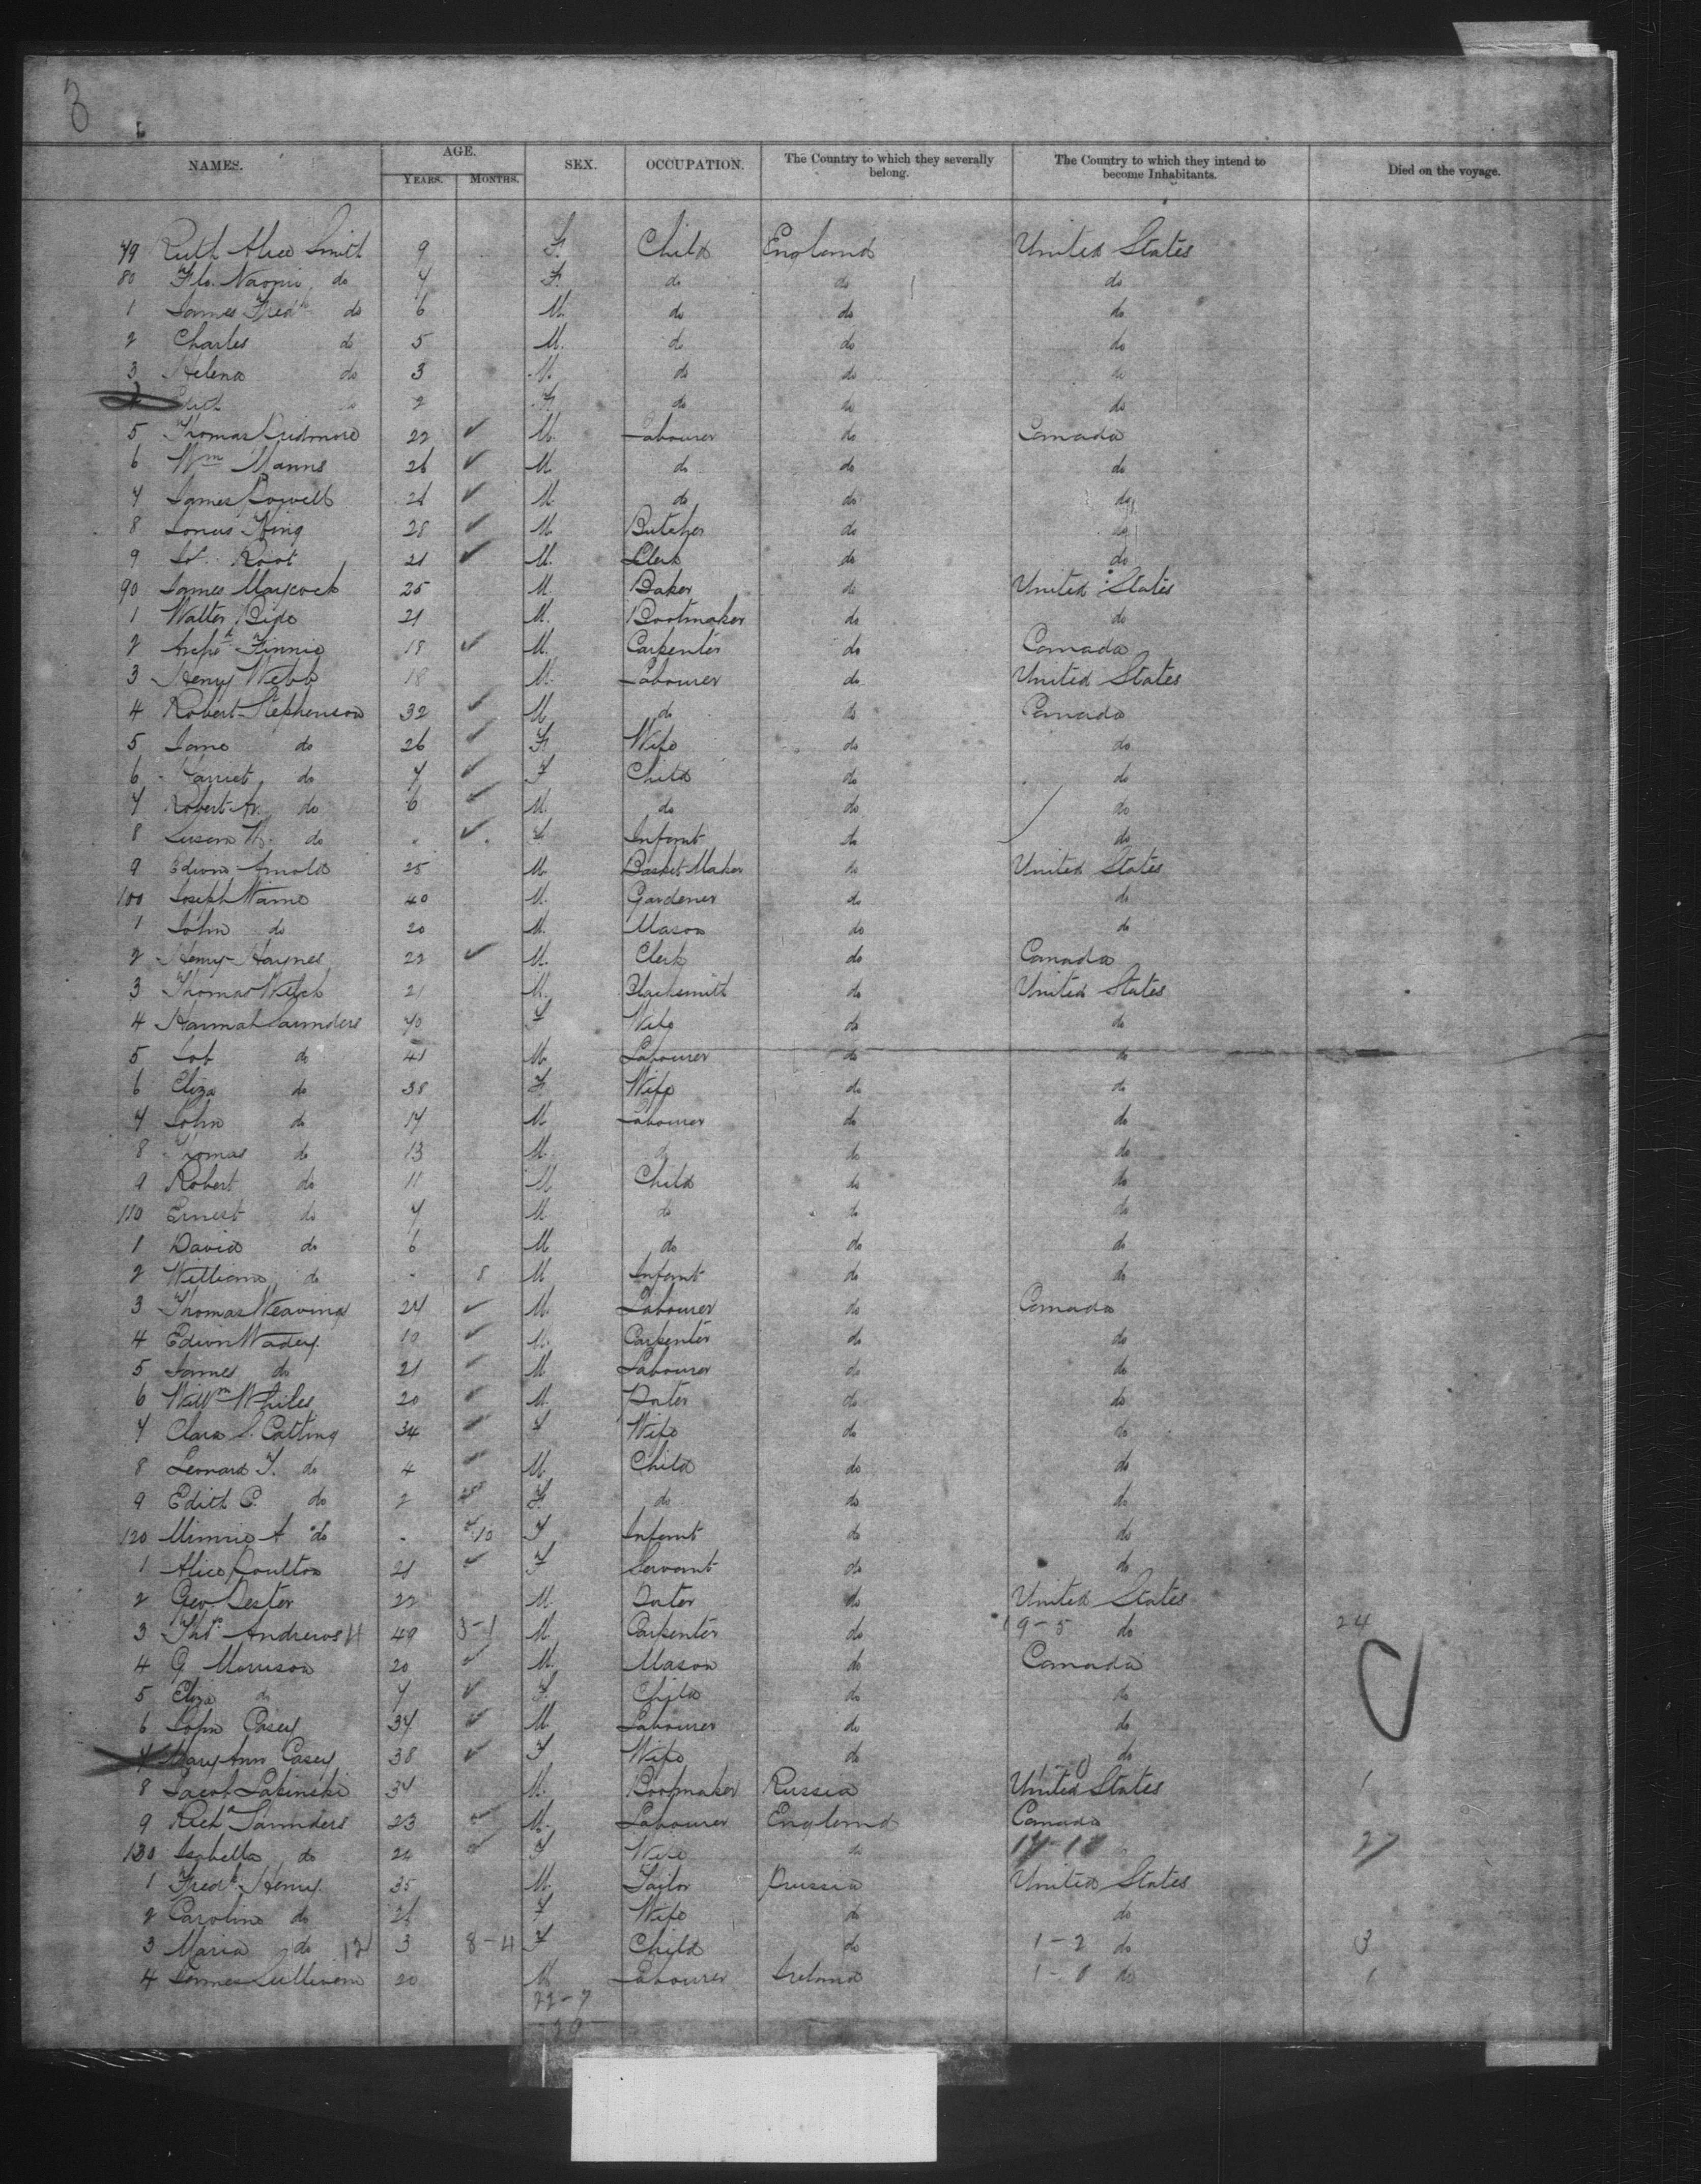 3
NAMES. AGE. YEARS. MONTHS. SEX. OCCUPATION. The Country to which they severally belong. The Country to which they intend to become Inhabitants. Died on the voyage.
79 Ruth Alice Smith 9 F. Child England United States
80 Flo. Naomi do 7 F. do do do
1 James Fredk do 6 M. do do do
2 Charles do 5 M. do do do
3 Helena do 3 M. do do do
Edith do 2 F. do do do
5 Thomas Pridmore 22 M. Labourer do Canada
6 Wm Manns 26 M do do do
7 James Powell 26 M do do do
8 King 28 M Butcher do do
9 Root 21 M. Clerk do do
90 James Maycock 25 M. Baker do United States
1 Walter 21 M. Bootmaker do do
2 Finnie 18 M. Carpenter do Canada
3 Henry Webb 18 M. Labourer do United States
4 Robert Stephenson 32 M do do Canada
5 Jane do 26 F Wife do do
6 Harriet do 7 F Child do do
7 Robert do 6 M. do do do
8 Susan do - F Infant do do
9 Edwin Arnold 25 M. Basket Maker do United States
100 Joseph 40 M. Gardener do do
1 John do 20 M. Mason do do
2 Henry Haynes 22 M. Clerk do Canada
3 Thomas Welch 21 M. Blacksmith do United States
4 Hannah Saunders 70 F Wife do do
5 Job do 41 M. Labourer do do
6 Eliza do 38 F Wife do do
7 John do 17 M Labourer do do
8 Thomas do 13 M. do do do
9 Robert do 11 M Child do do
110 Ernest do 7 M do do do
1 David do 6 M do do do
2 William do - 8 M Infant do do
3 Thomas Weaving 24 M. Labourer do Canada
4 Edwin Wadey 19 M. Carpenter do do
5 James do 21 M Labourer do do
6 Willm Whiles 20 M. do do
7 Clara S. Catting 34 F Wife do do
8 Leonard T. do 4 M. Child do do
9 Edith C. do 2 F. do do do
120 Minnie A do - 10 F Infant do do
1 Alice Poulton 21 F Servant do do
2 Geo Dester 22 M. do United States
3 Thos Andrews 49 3-1 M. Carpenter do 19-5 do 24
4 G Morrison 20 M. Mason do Canada
5 Eliza do 7 F. Child do do
6 John Casey 37 M Labourer do do
7 Mary Ann Casey 38 F Wife do do
8 Jacob 34 M. Bootmaker Russia United States 1
9 Richd Saunders 23 M. Labourer England Canada
130 Isabella do F Wife do
1 Fredk Henry 35 M. Tailor Prussia United States
2 Caroline do F Wife do do
3 Maria do 12 3 8-4 F Child do 1-2 do 3
4 James Sullivan 20 M Labourer Ireland do 1
22-7